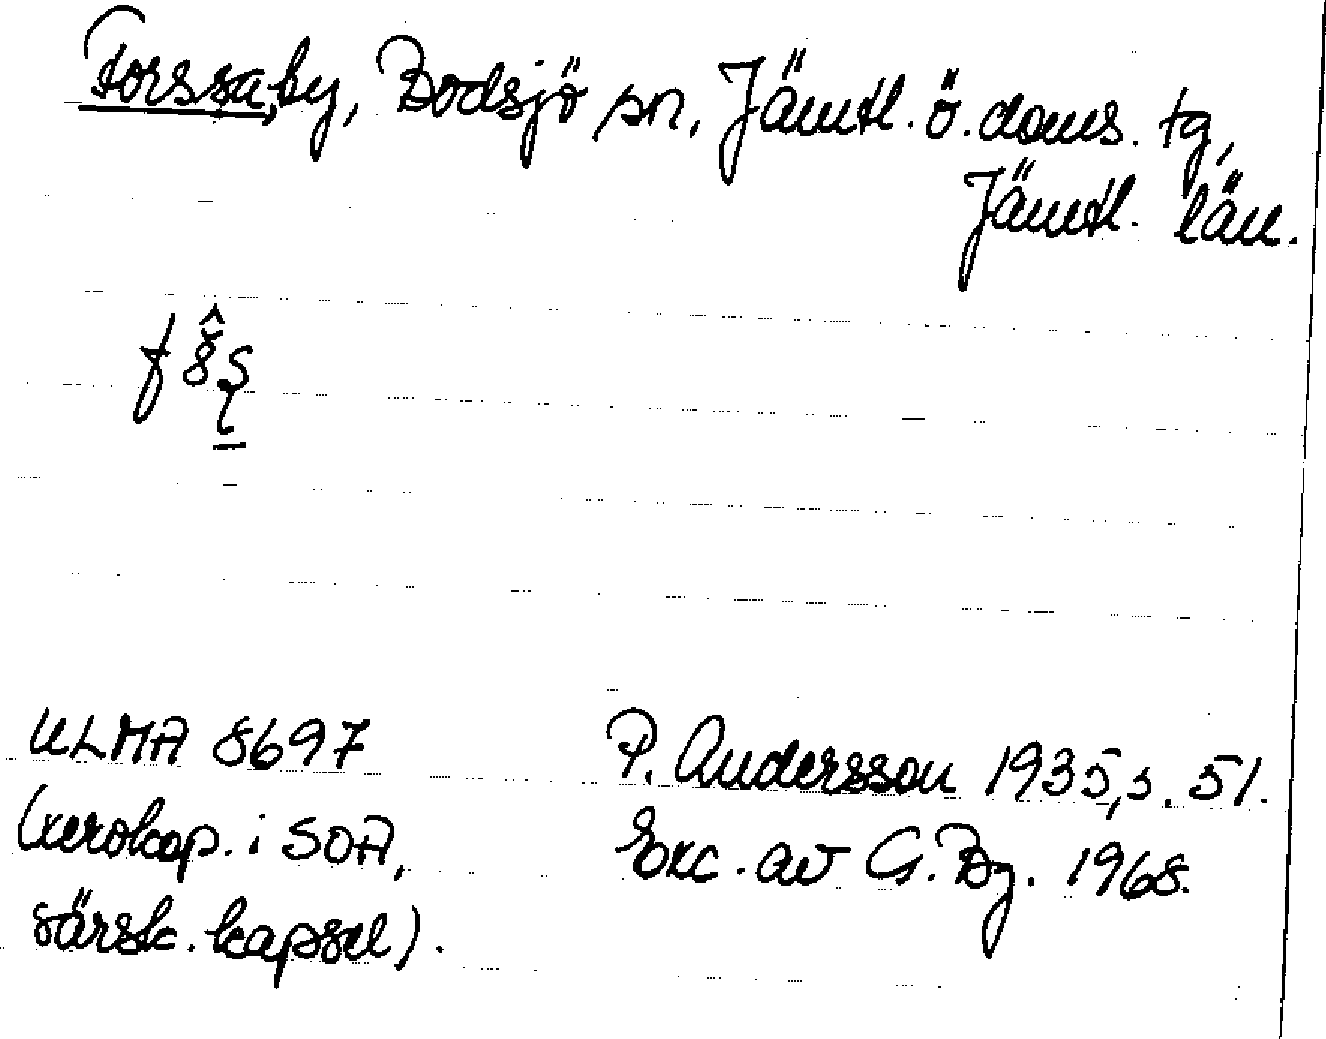 Forssa, by, Bodsjö sn, Jämtl. ö. doms. tg,
Jämtl. län.
ULMA 8697 P. Andersson 1935, s. 51.
(xerokop. i SOA, Exc. av G. Bg. 1968.
särsk. kapsel).